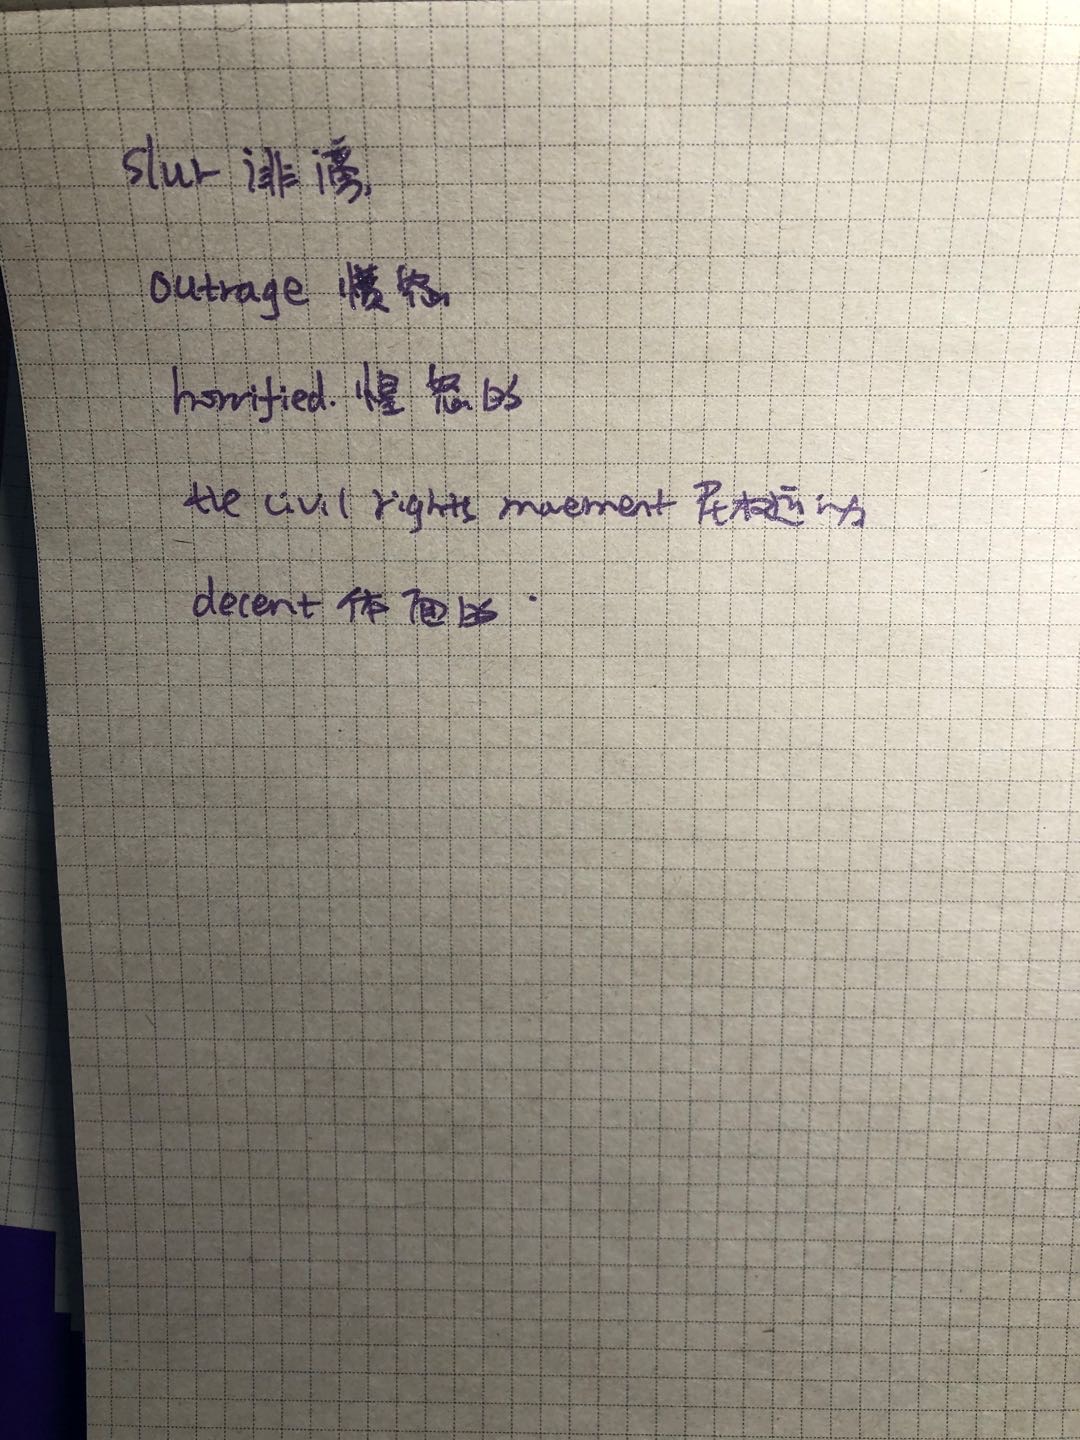 slur 诽谤
outrage 愤怒
horrified. 惶怒的
the civil rights movement 民权运动
decent 体面的.